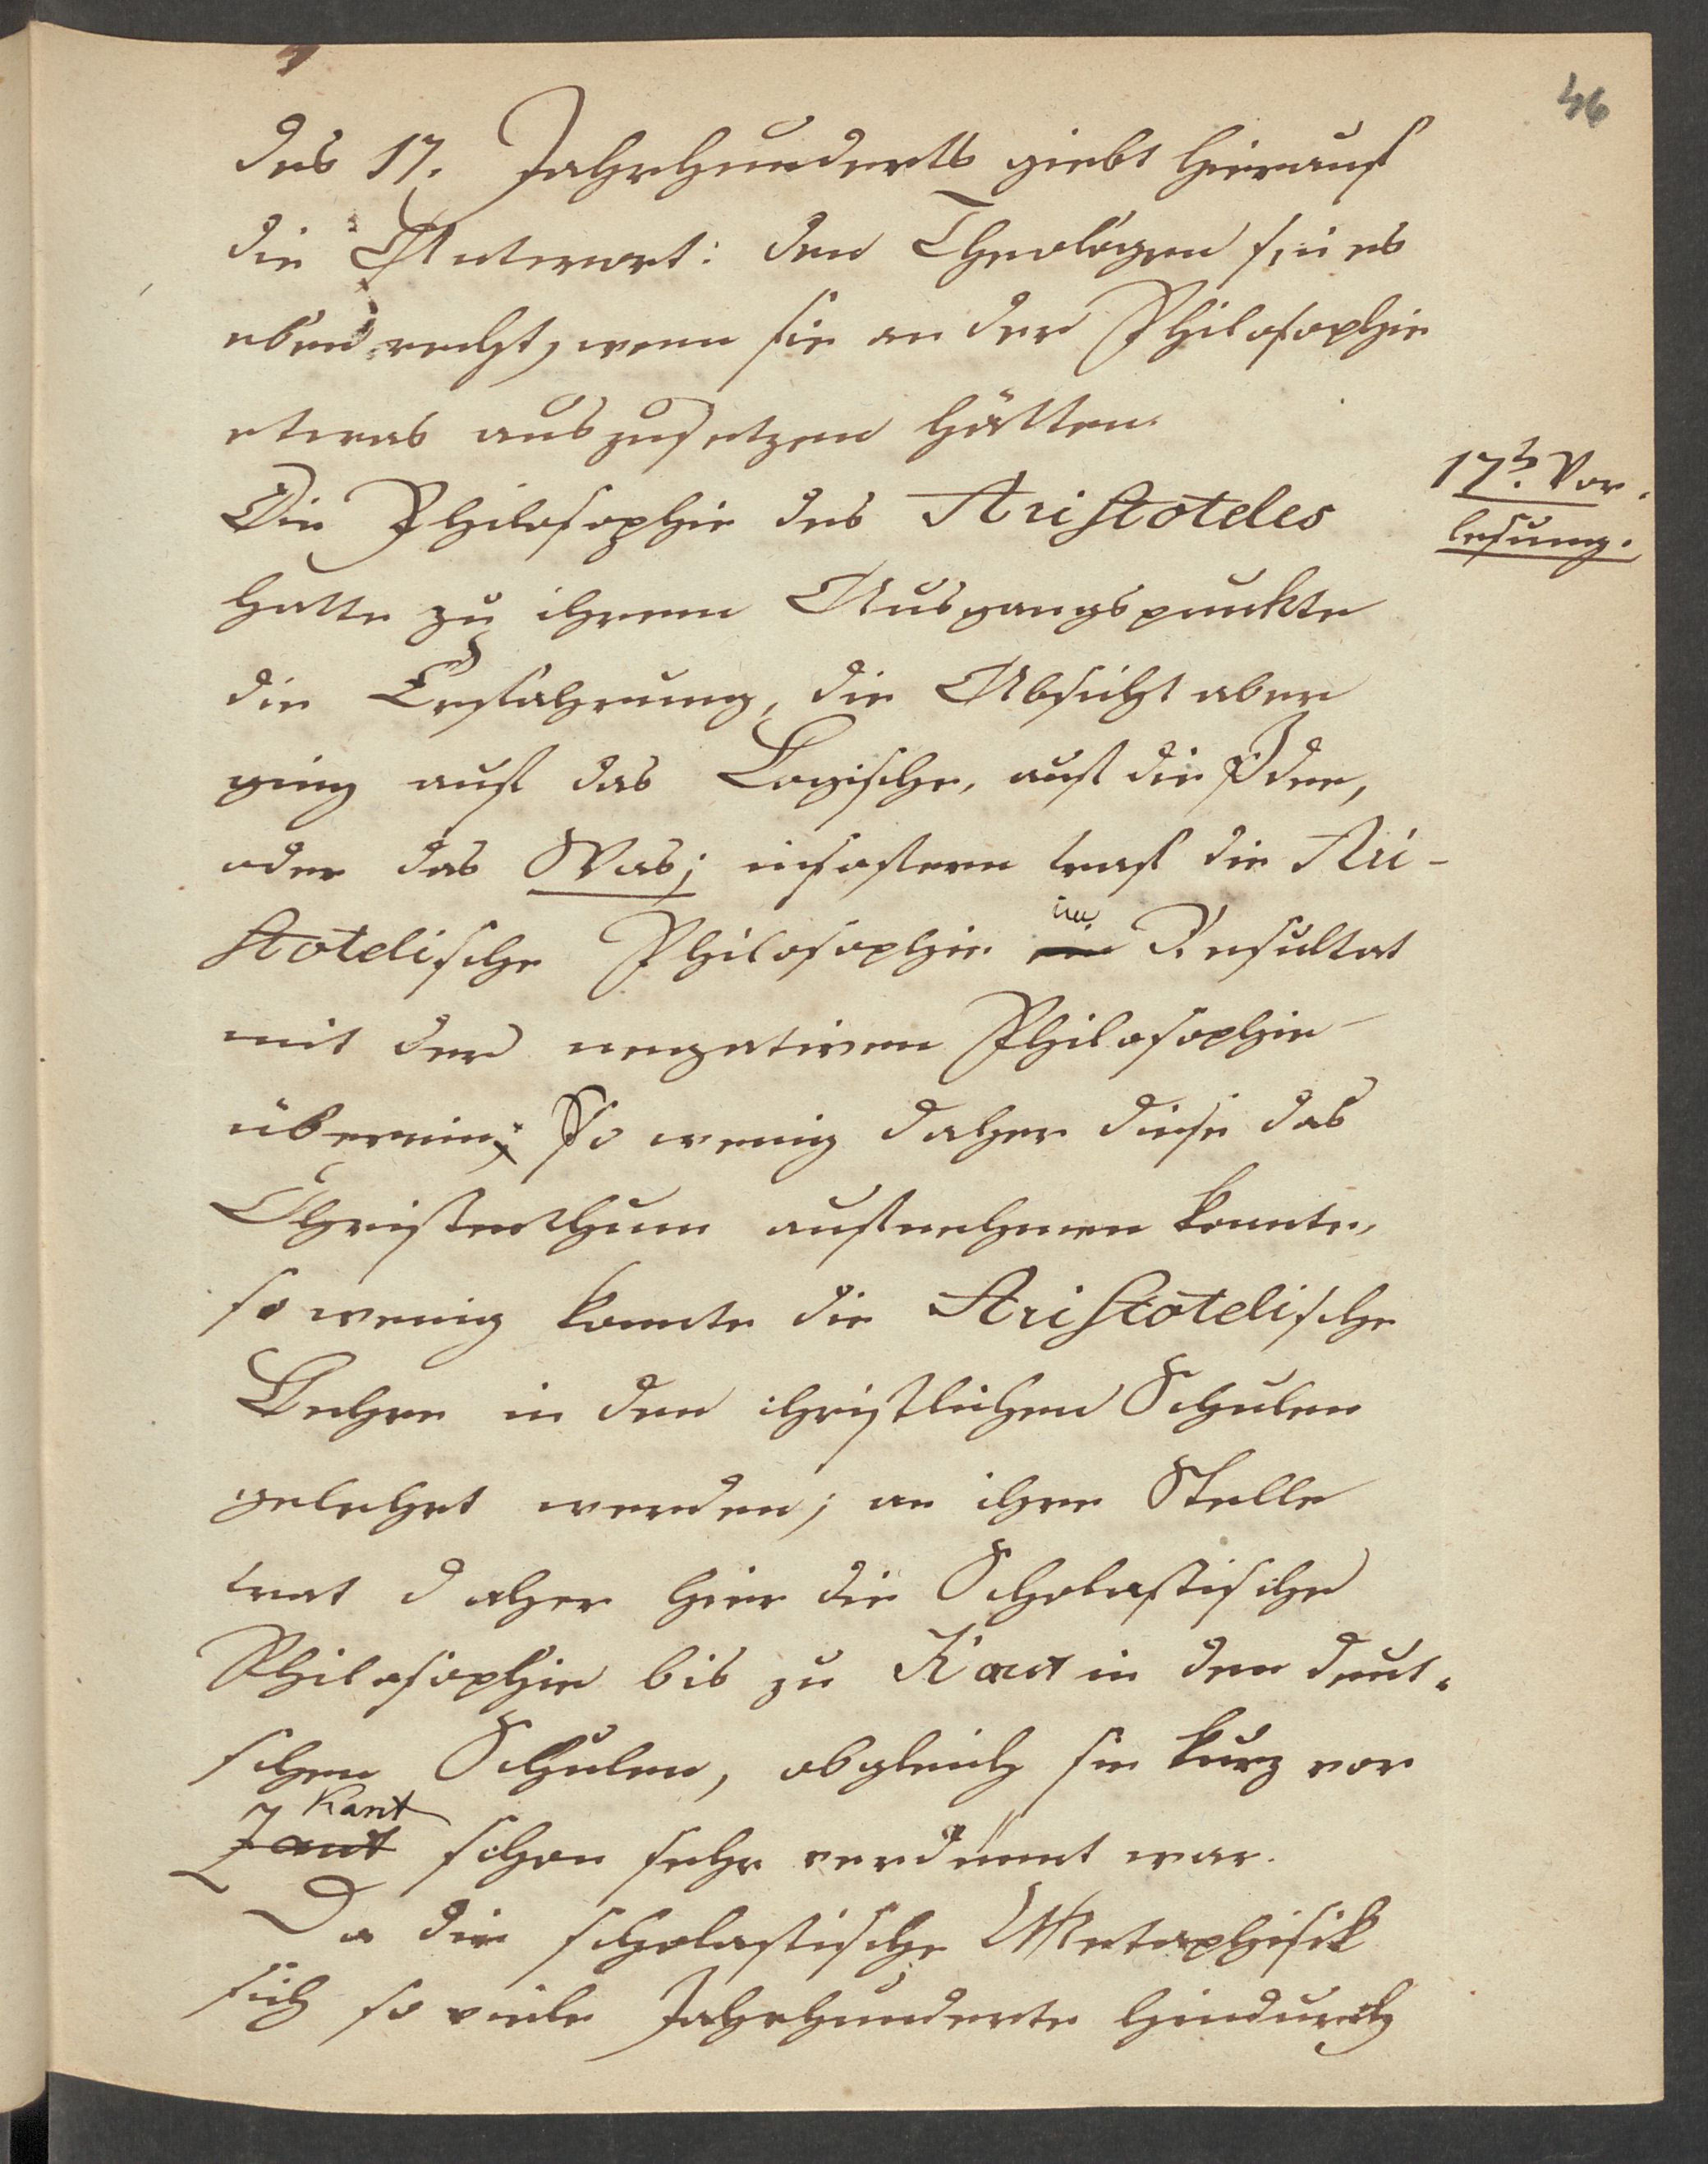 46
des 17. Jahrhunderts giebt hierauf
die Antwort: den Theologen sei es
eben recht, wenn sie an der Philosophie
etwas auszusetzen hätten.
17te Vor-
lesung.
Die Philosophie des Aristoteles
hatte zu ihrem Ausgangspunkte
die Erfahrung, die Absicht aber
ging auf das Logische, auf die Idee,
oder das Was; insofern traf die Ari-
stotelische Philosophie im Resultat
mit der negativen Philosophie
überein; So wenig daher diese das
Christenthum aufnehmen konnte,
so wenig konnte die Aristotelische
Lehre in den christlichen Schulen
gelehrt werden; an ihre Stelle
trat daher hier die Scholastische
Philosophie bis zu Kant in den deut-
schen Schulen, obgleich sie kurz vor
Kant schon sehr verdünnt war.
Da die scholastische Metaphisik
sich so viele Jahrhunderte hindurch